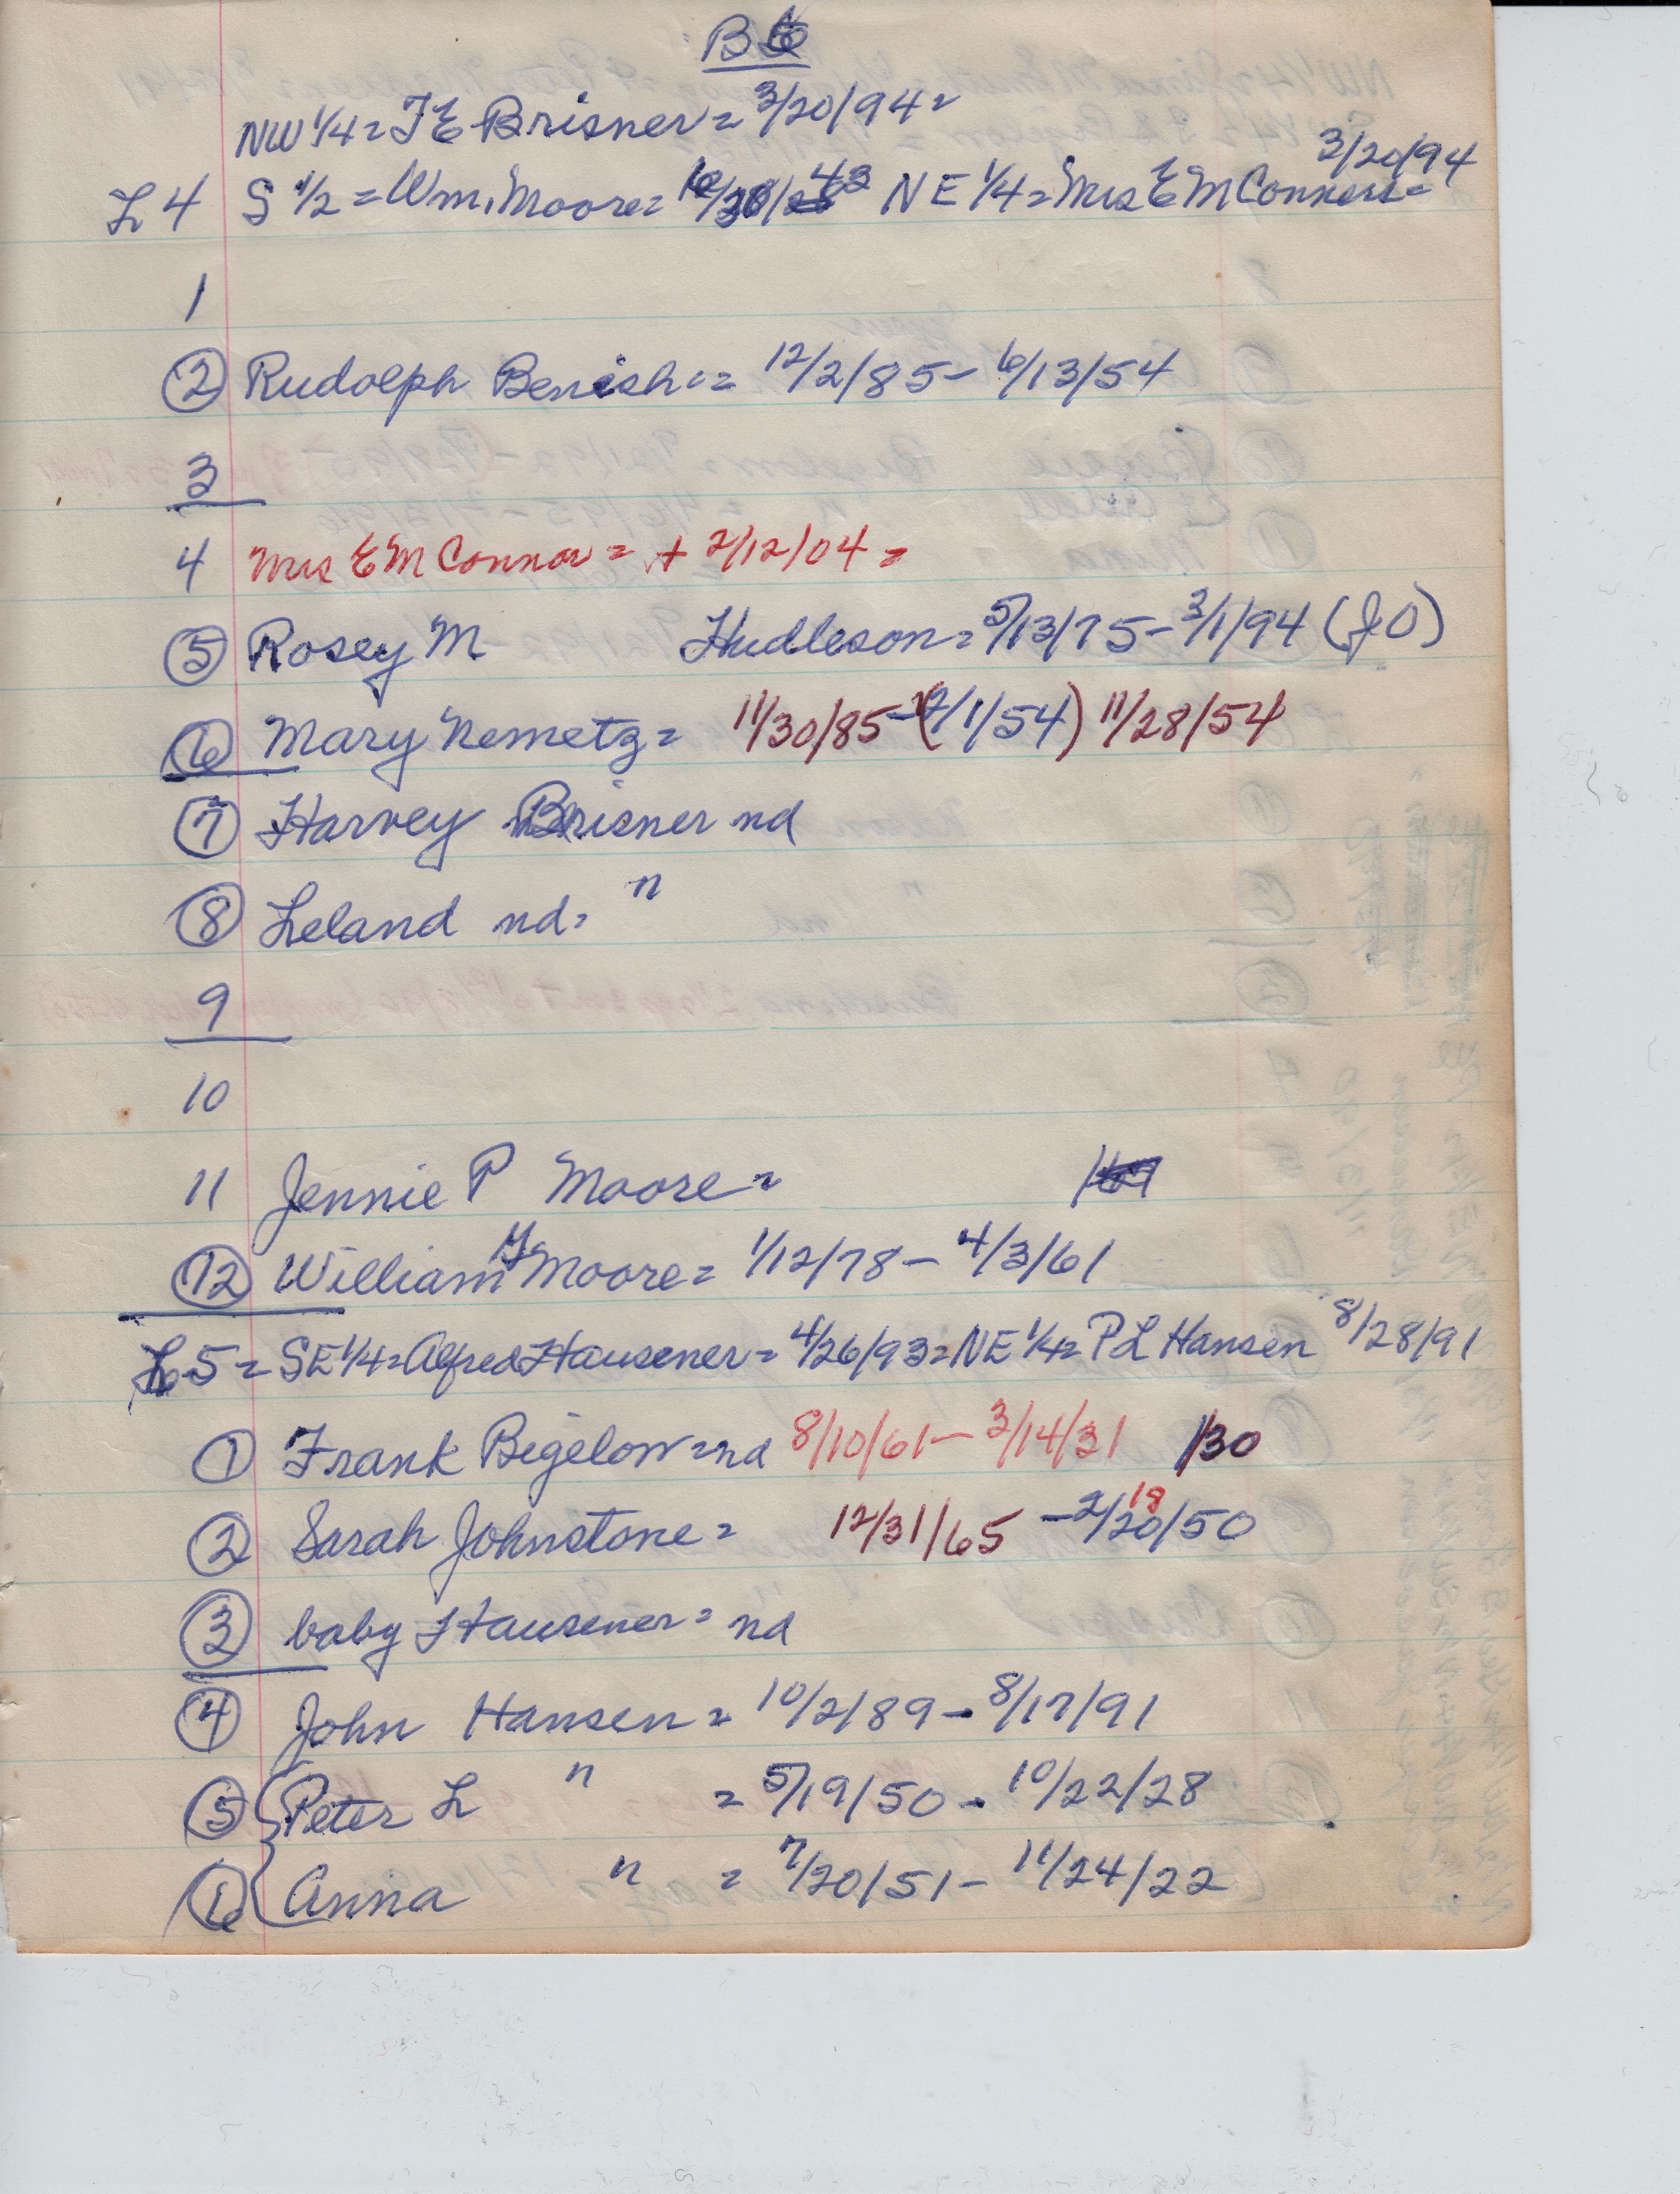 B 6
NW 1/4 = J E Brisner = 3/20/94 =
3/20/94
L 4 S 1/2 = Wm. Moore = 43 NE 1/4 = Mrs E M Conners =
1
2 Rudolph Benish = 12/2/85 - 6/13/54
3
4 Mrs E M Connor = + 2/12/04 =
5 Rosey M Hudleson = 5/13/75 - 3/1/94 (JO)
6 Mary Nemetz = 11/30/85 - (12/1/54) 11/28/54
7 Harvey Brisner nd
8 Leland nd = "
9
10
11 Jennie P Moore =
12 William Moore = 1/12/78 - 4/3/61
L 5 = SE 1/4 = Alfred Hausener = 4/26/93 = NE 1/4 = P L Hansen 8/28/91
1 Frank Bigelow = nd 8/10/61 - 3/14/31 1/30
2 Sarah Johnstone = 12/31/65 - 2/20/50 18
3 baby Hausener = nd
4 John Hansen = 10/2/89 - 8/17/91
5 { Peter L " = 5/19/50 - 10/22/28
6 { Anna " = 7/20/51 - 11/24/22